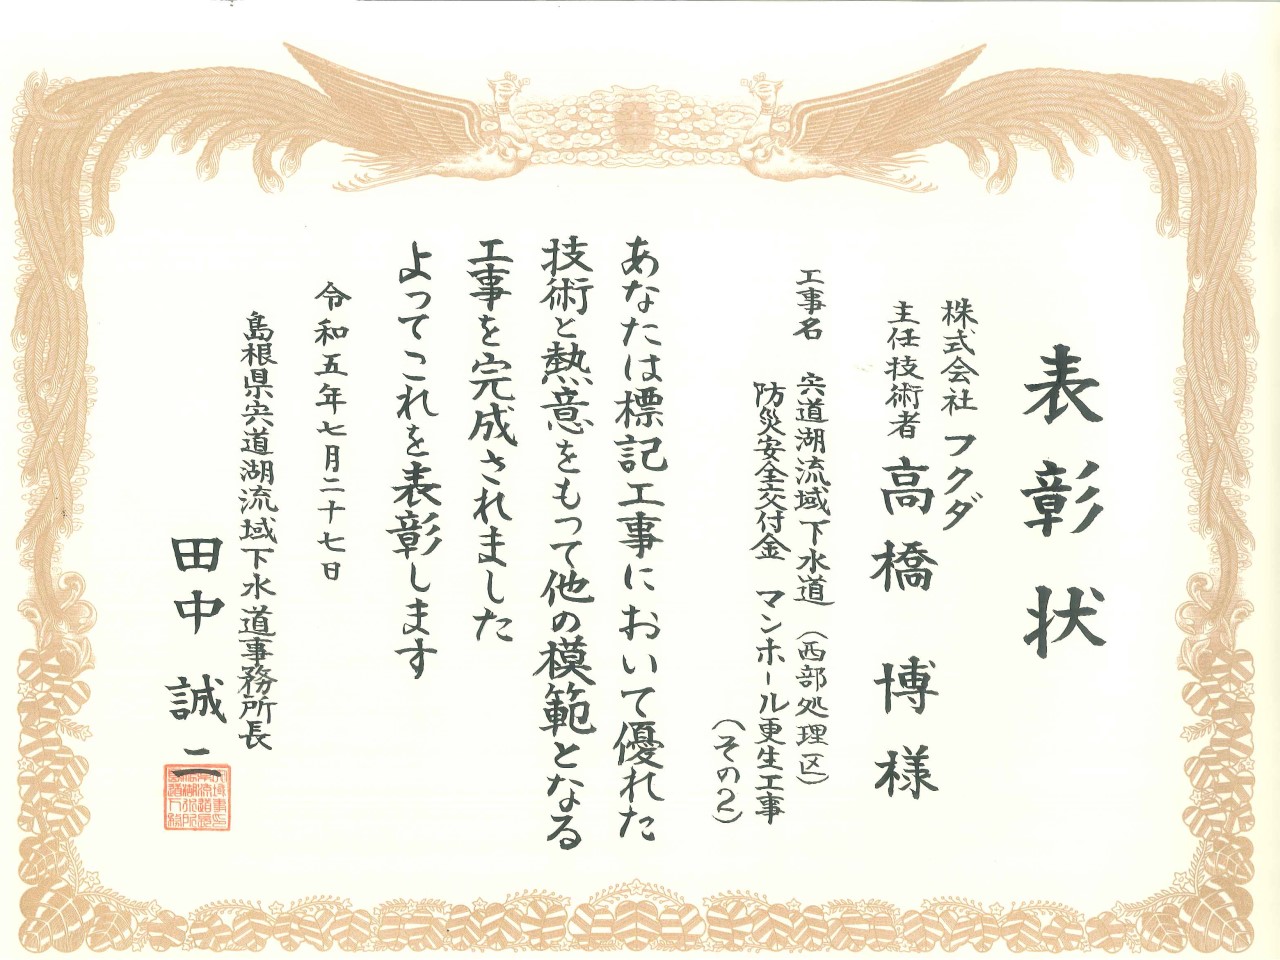 表彰状
株式会社フクダ
主任技術者 高橋 博 様
工事名 宍道湖流域下水道(西部処理区)
防災安全交付金 マンホール更生工事
(その2)
あなたは標記工事において優れた
技術と熱意をもって他の模範となる
工事を完成されました
よってこれを表彰します
令和五年七月二十七日
島根県宍道湖流域下水道事務所長
田中 誠二